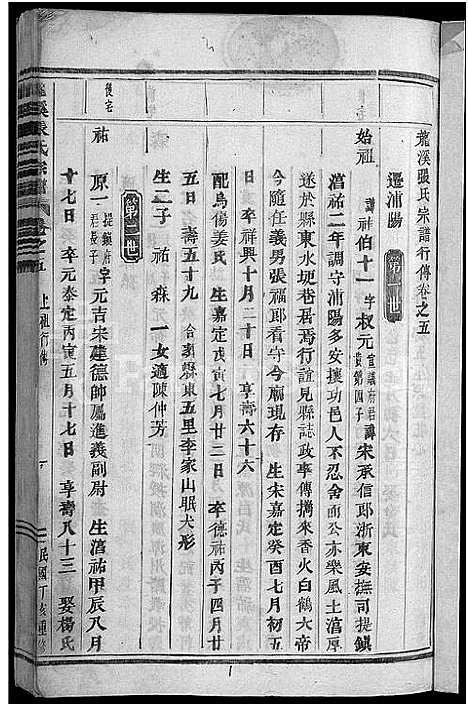 龍溪張氏宗譜行傳卷之五
遷浦陽 第一世
始祖 諱祥伯十一字叔元宣議府君諱黄第四子宋承信郎浙東安撫司提鎮
淳祐二年調守浦陽多安攘功邑人不忍舍而公亦樂風土淳厚
遂於縣東水埂巷居焉行誼見縣誌政事傳携來香火白鶴大帝
今隨任義男張福郎看守今廟現存 生宋嘉定癸酉七月初五
日 卒祥興十月二十日 享壽六十六
配烏傷姜氏 生嘉定戊寅七月廿二日 卒德祐丙子四月廿
五日 壽五十九 合塟縣東五里李家山眠犬形
生二子 祐 森 一女適陳仲芳
第二世
後宅
祐 原一提鎮府君長子字元吉宋建德帥屬進義副尉 生淳祐甲辰八月
十七日 卒元泰定丙寅五月十七日 享壽八十三 娶楊氏
龍溪張氏宗譜 卷之五 上祖行傳 一 民國丁亥重修